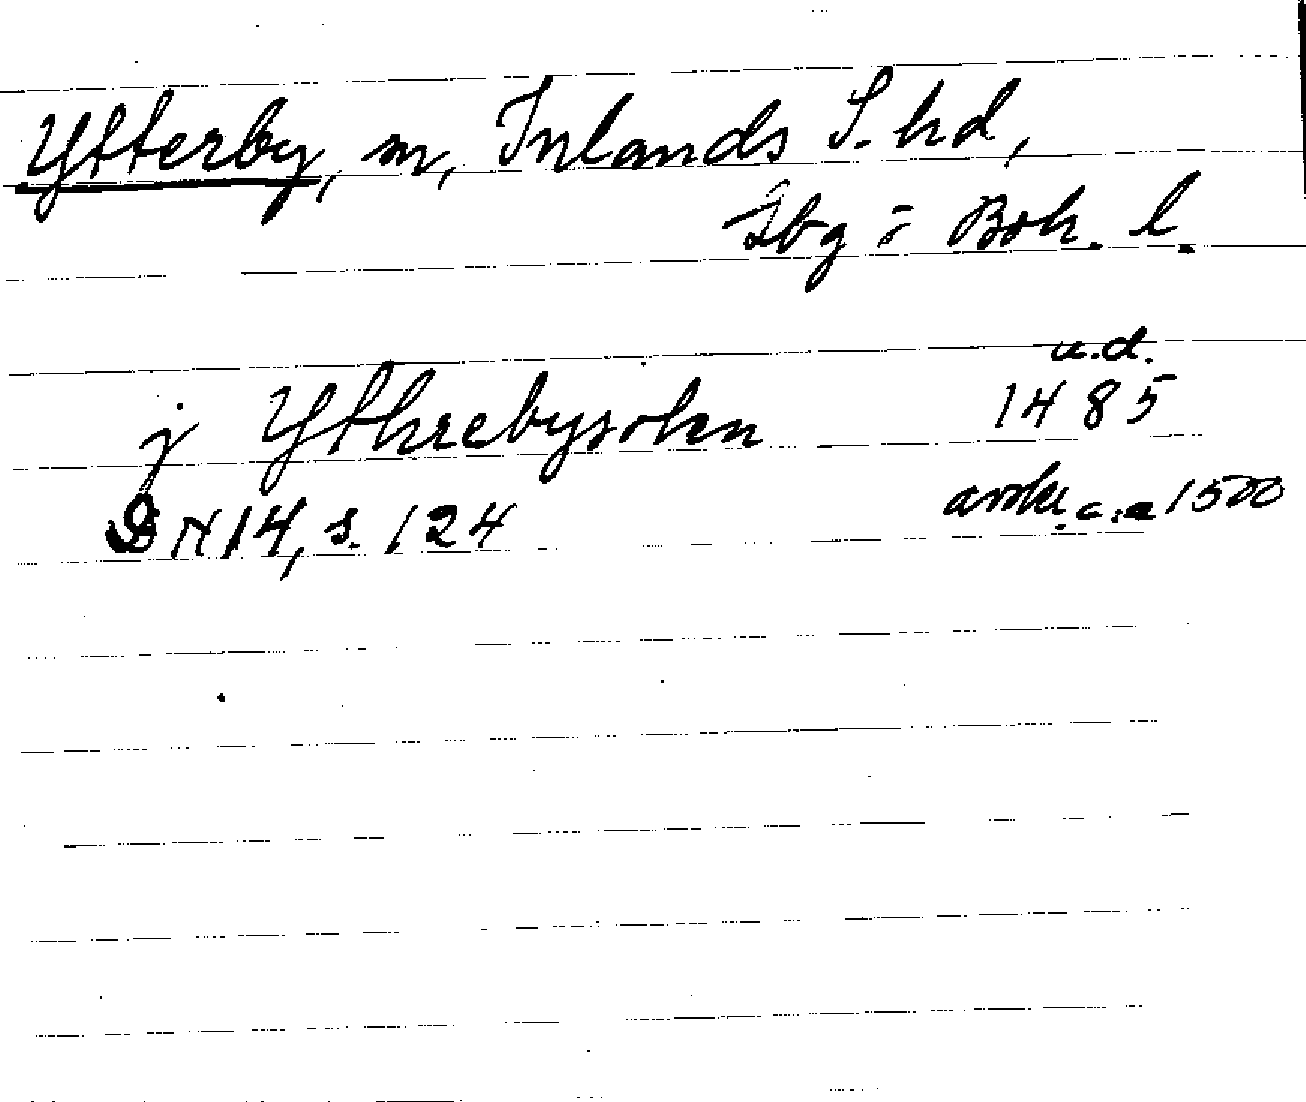 Ytterby, sn, Inlands S. hd,
Gbg = Boh. l.
u.d.
j Ythrebysokn 1485
DN 14, s. 124 avskr. c:a 1500